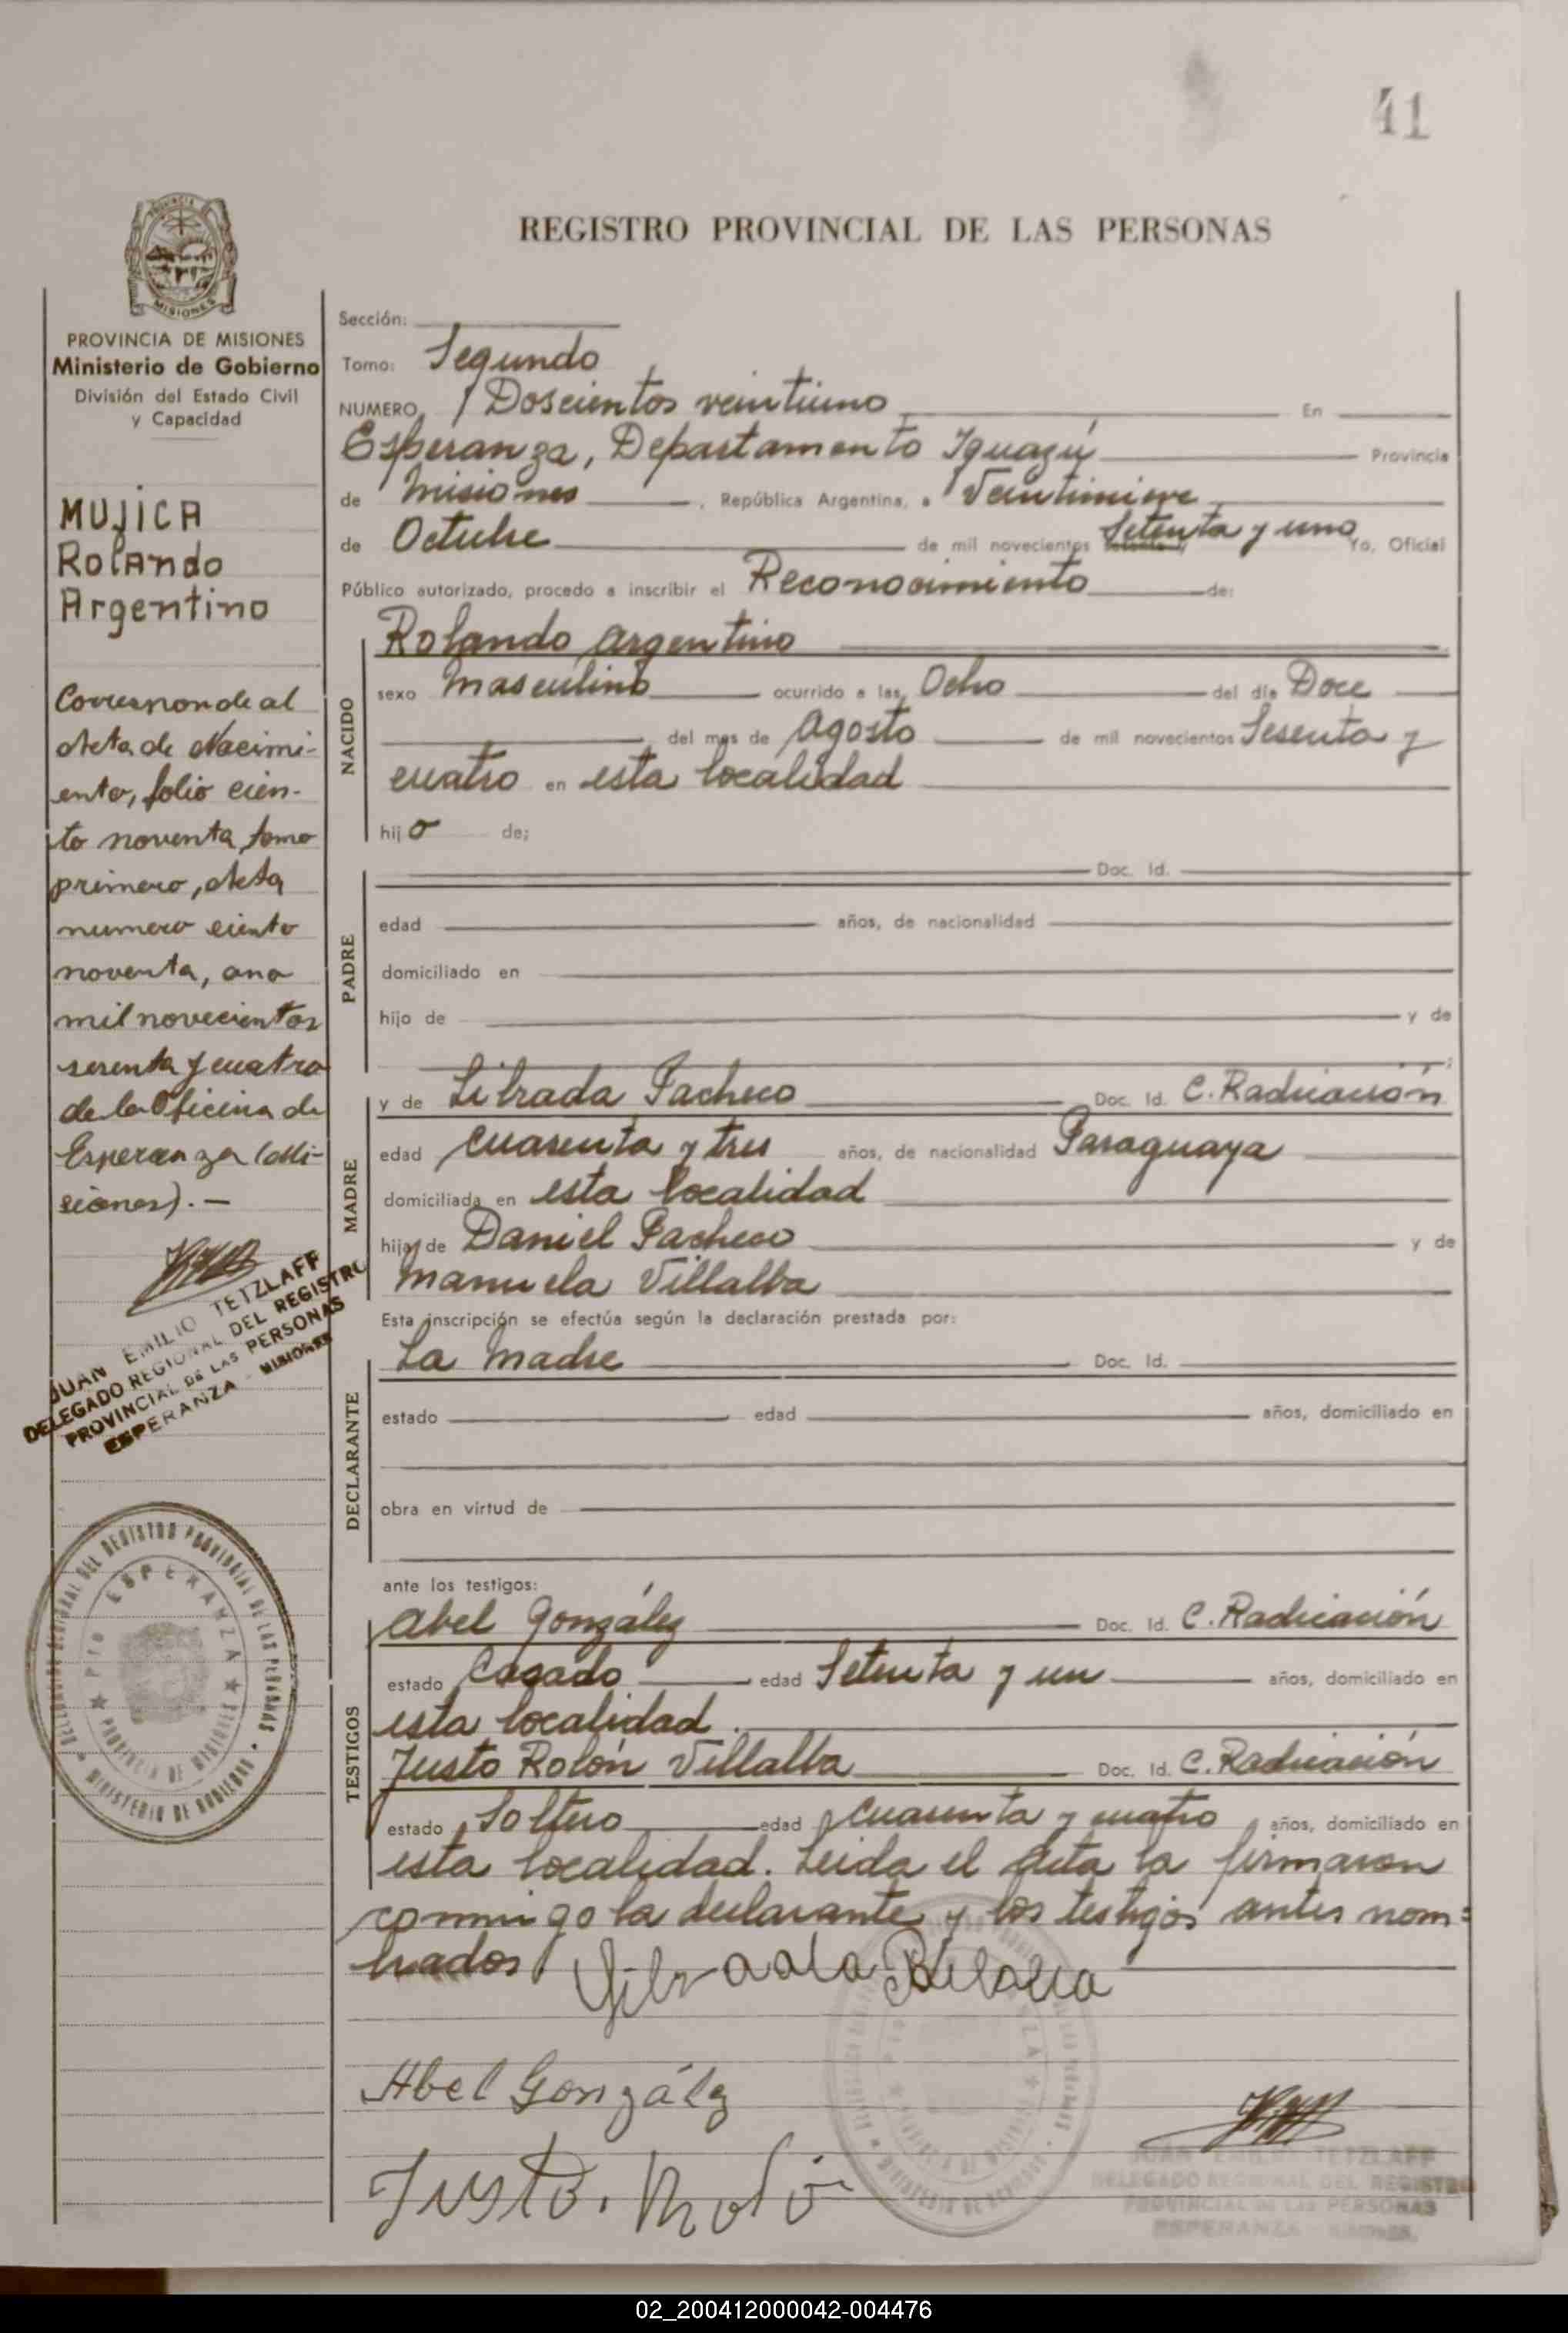 41
REGISTRO PROVINCIAL DE LAS PERSONAS
PROVINCIA DE MISIONES
Ministerio de Gobierno
División del Estado Civil
y Capacidad
MUJICA
Rolando
Argentino
Corresponde al
Acta de Nacimi-
ento, folio cien-
to noventa, tomo
primero, Acta
numero ciento
noventa, ano
mil novecientos
sesenta y cuatro
de la Oficina de
Esperanza (Mi-
siones).-
JUAN EMILIO TETZLAFF
DELEGADO REGIONAL DEL REGISTRO
PROVINCIAL DE LAS PERSONAS
ESPERANZA - MISIONES
Sección:
Tomo: Segundo
NUMERO Doscientos veintiuno En
Esperanza, Departamento Iguazú Provincia
de Misiones, República Argentina, a Veintinueve
de Octubre de mil novecientos Setenta y uno Yo, Oficial
Público autorizado, procedo a inscribir el Reconocimiento de:
NACIDO
Rolando Argentino
sexo Masculino ocurrido a las Ocho del día Doce
del mes de Agosto de mil novecientos Sesenta y
cuatro en esta localidad
hijo de;
PADRE
Doc. Id.
edad años, de nacionalidad
domiciliado en
hijo de y de
MADRE
y de Librada Pacheco Doc. Id. C. Radicación
edad Cuarenta y tres años, de nacionalidad Paraguaya
domiciliada en esta localidad
hija de Daniel Pacheco y de
Manuela Villalba
Esta inscripción se efectúa según la declaración prestada por:
DECLARANTE
La Madre Doc. Id.
estado edad años, domiciliado en
obra en virtud de
ante los testigos:
TESTIGOS
Abel González Doc. Id. C. Radicación
estado Casado edad Setenta y un años, domiciliado en
esta localidad.
Justo Rolón Villalba Doc. Id. C. Radicación
estado Soltero edad Cuarenta y cuatro años, domiciliado en
esta localidad. Leida el Acta la firmaron
conmigo la declarante y los testigos antes nom=
brados
Abel González
Justo. Roló
JUAN EMILIO TETZLAFF
DELEGADO REGIONAL DEL REGISTRO
PROVINCIAL DE LAS PERSONAS
ESPERANZA - MISIONES
02_200412000042-004476